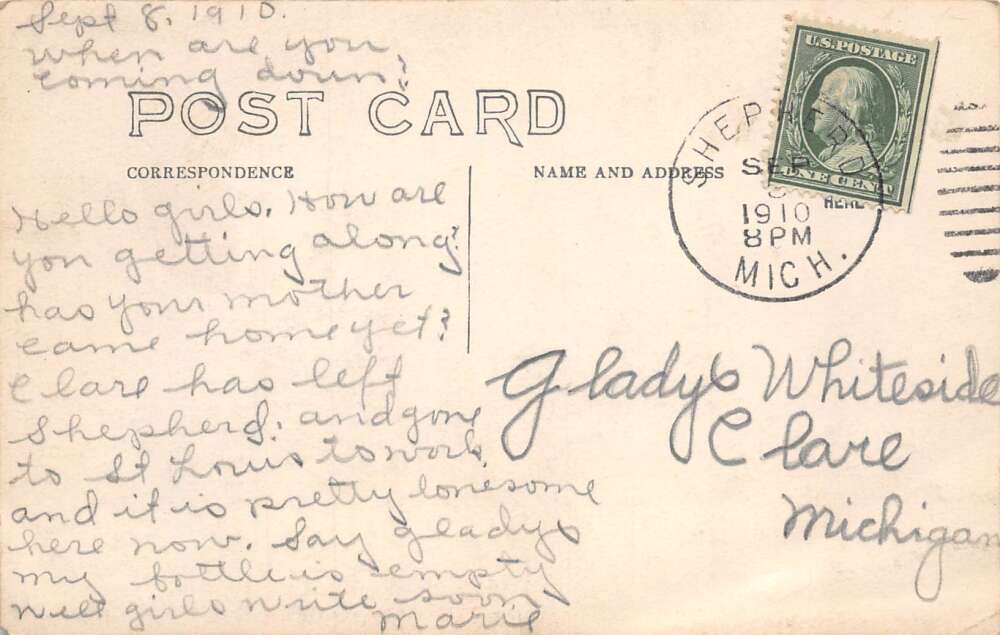 Sept 8, 1910.
when are you
coming down?
POST CARD
CORRESPONDENCE
NAME AND ADDRESS
Hello girls. How are
you getting along?
has your mother
came home yet?
Clare has left
Shepherd. and gone
to St Louis to work,
and it is pretty lonesome
here now. Say gladys
my bottle is empty
well girls write soon
Marie
U.S. POSTAGE
ONE CENT
HERE
SHEPHERD
SEP
8
1910
8 PM
MICH.
Gladys Whiteside
Clare
Michigan